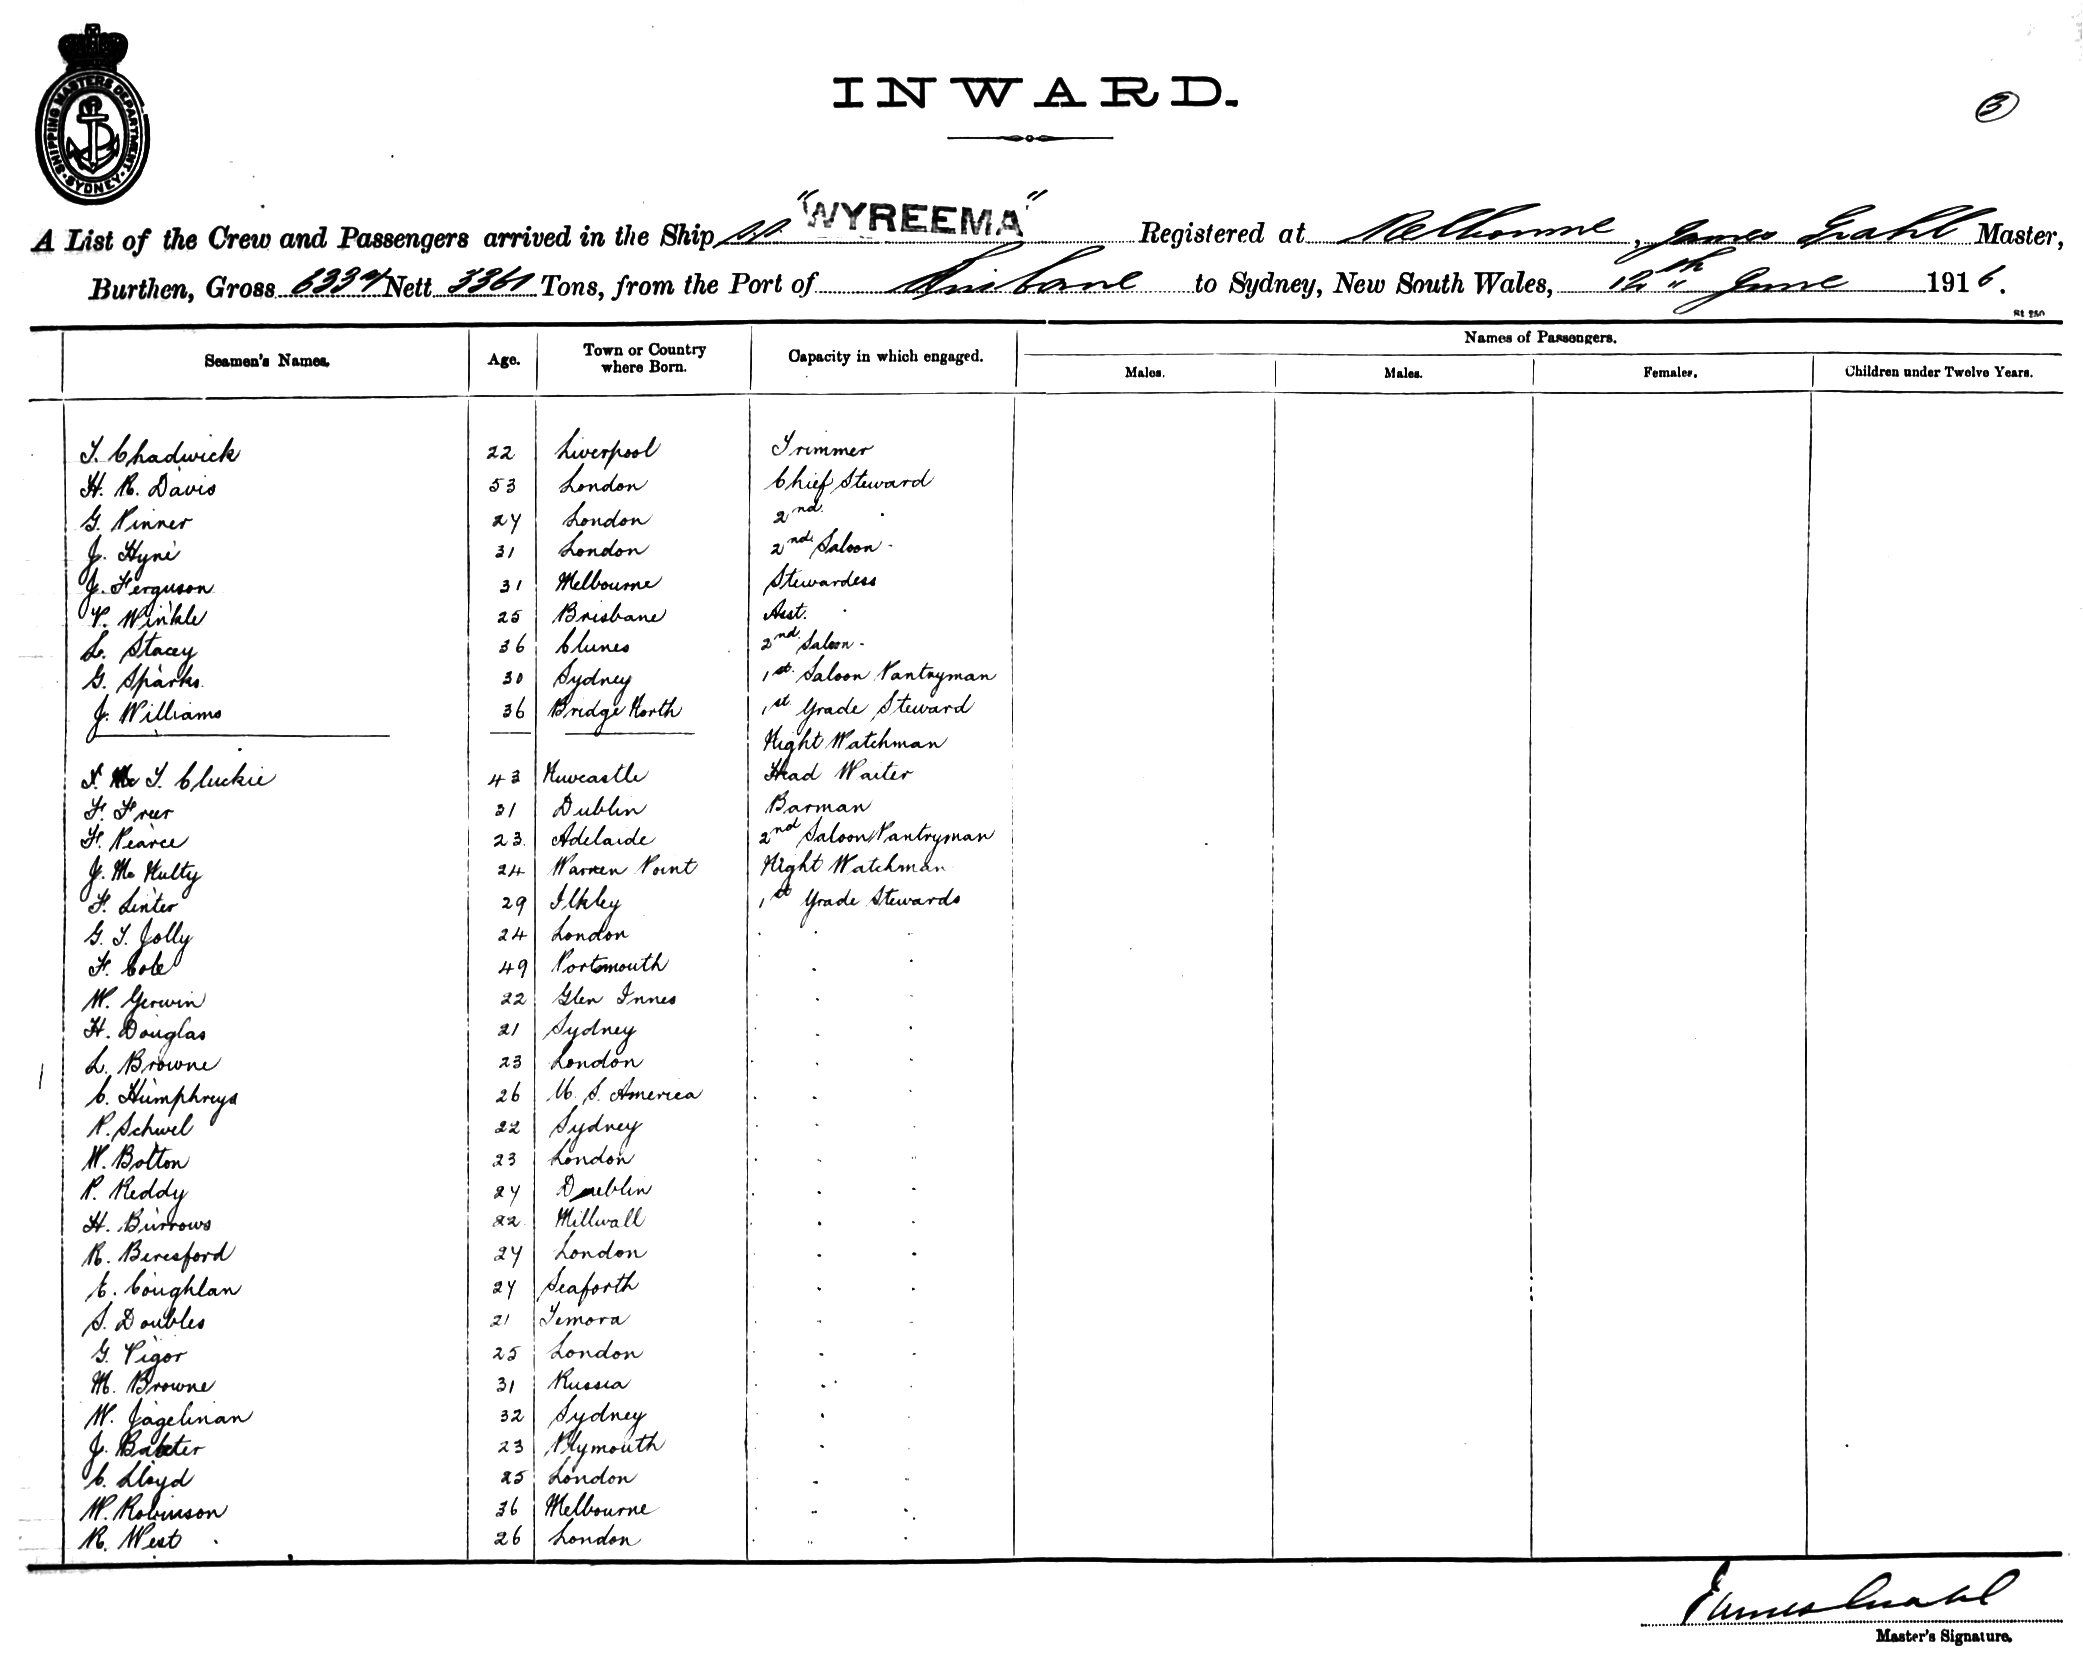 SHIPPING MASTERS DEPARTMENT
SYDNEY
INWARD.
3
A List of the Crew and Passengers arrived in the Ship S.S. "WYREEMA" Registered at Melbourne, James Grahl Master,
Burthen, Gross 6339 Nett 3361 Tons, from the Port of Brisbane to Sydney, New South Wales, 12th June 1916.
St 250
Seamen's Names. Age. Town or Country where Born. Capacity in which engaged. Names of Passengers.
Males. Males. Females. Children under Twelve Years.
T. Chadwick 22 Liverpool Trimmer
H. R. Davis 53 London Chief Steward
G. Pinner 27 London 2nd "
J. Hyne 31 London 2nd Saloon "
J. Ferguson 31 Melbourne Stewardess
V. Winkle 25 Brisbane Asst. "
L. Stacey 36 Clunes 2nd Saloon "
G. Sparks 30 Sydney 1st Saloon Pantryman
J. Williams 36 Bridge North 1st Grade Steward
Night Watchman
T. Cluckie 43 Newcastle Head Waiter
F. Freer 31 Dublin Barman
F. Pearce 23 Adelaide 2nd Saloon Pantryman
J. Mc Nulty 24 Warren Point Night Watchman
F. Linter 29 Ilkley 1st Grade Stewards
G. T. Jolly 24 London " "
F. Cole 49 Portsmouth " "
W. Gerwin 22 Glen Innes " "
H. Douglas 21 Sydney " "
L. Browne 23 London " "
C. Humphreys 26 U. S. America " "
P. Schwel 22 Sydney " "
W. Bolton 23 London " "
P. Reddy 27 Dublin " "
H. Burrows 22 Millwall " "
R. Beresford 27 London " "
E. Coughlan 27 Seaforth " "
S. Doubles 21 Temora " "
G. Vigor 25 London " "
M. Browne 31 Russia " "
W. Jagelman 32 Sydney " "
J. Baxter 23 Plymouth " "
C. Lloyd 25 London " "
W. Robinson 36 Melbourne " "
R. West 26 London " "
James Grahl
Master's Signature.